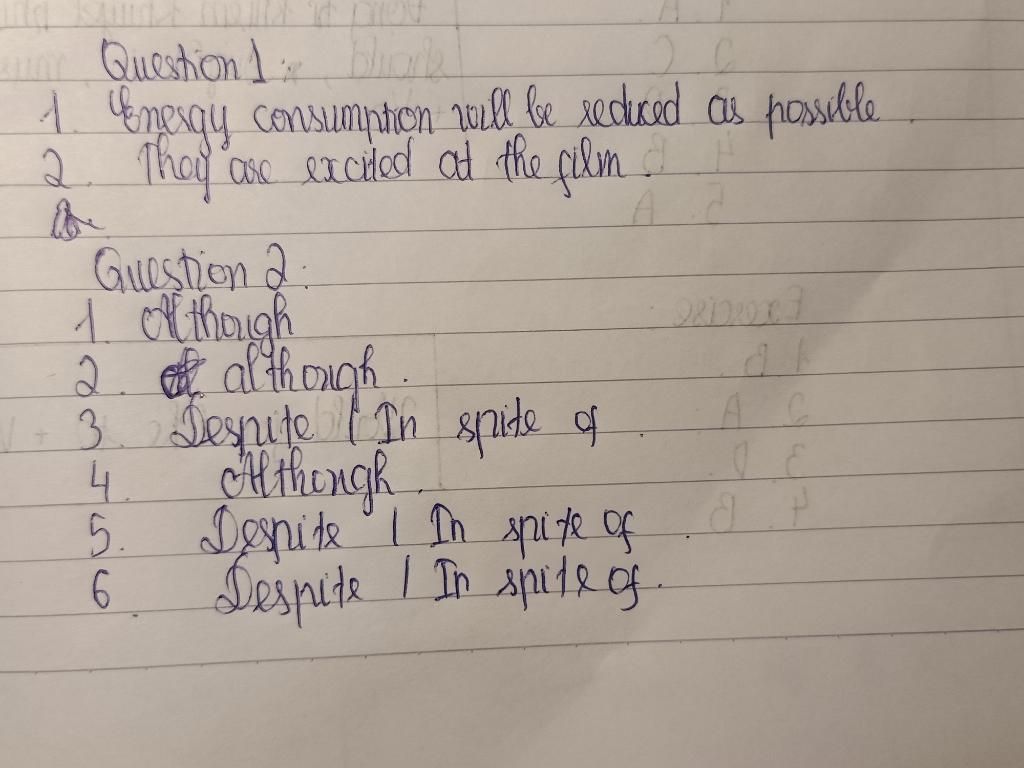 Question 1:
1. Energy consumption will be reduced as possible.
2. They are excited at the film.
Question 2:
1 Although
2. although.
3. Despite / In spite of.
4. Although.
5. Despite / In spite of.
6. Despite / In spite of.